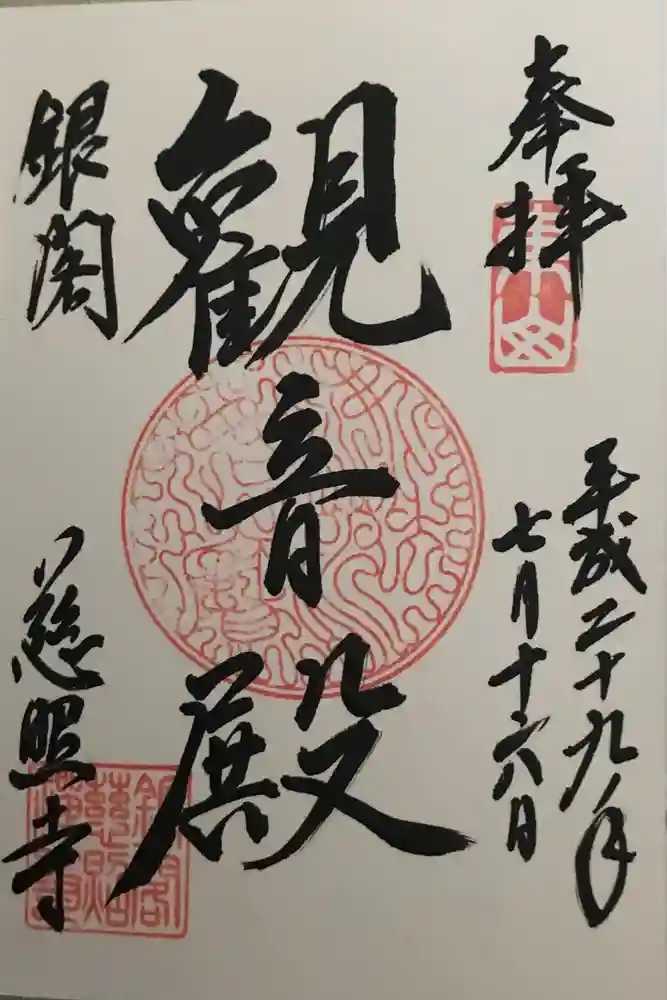 奉拝
平成二十九年
七月十六日
観音殿
銀閣
慈照寺
東山